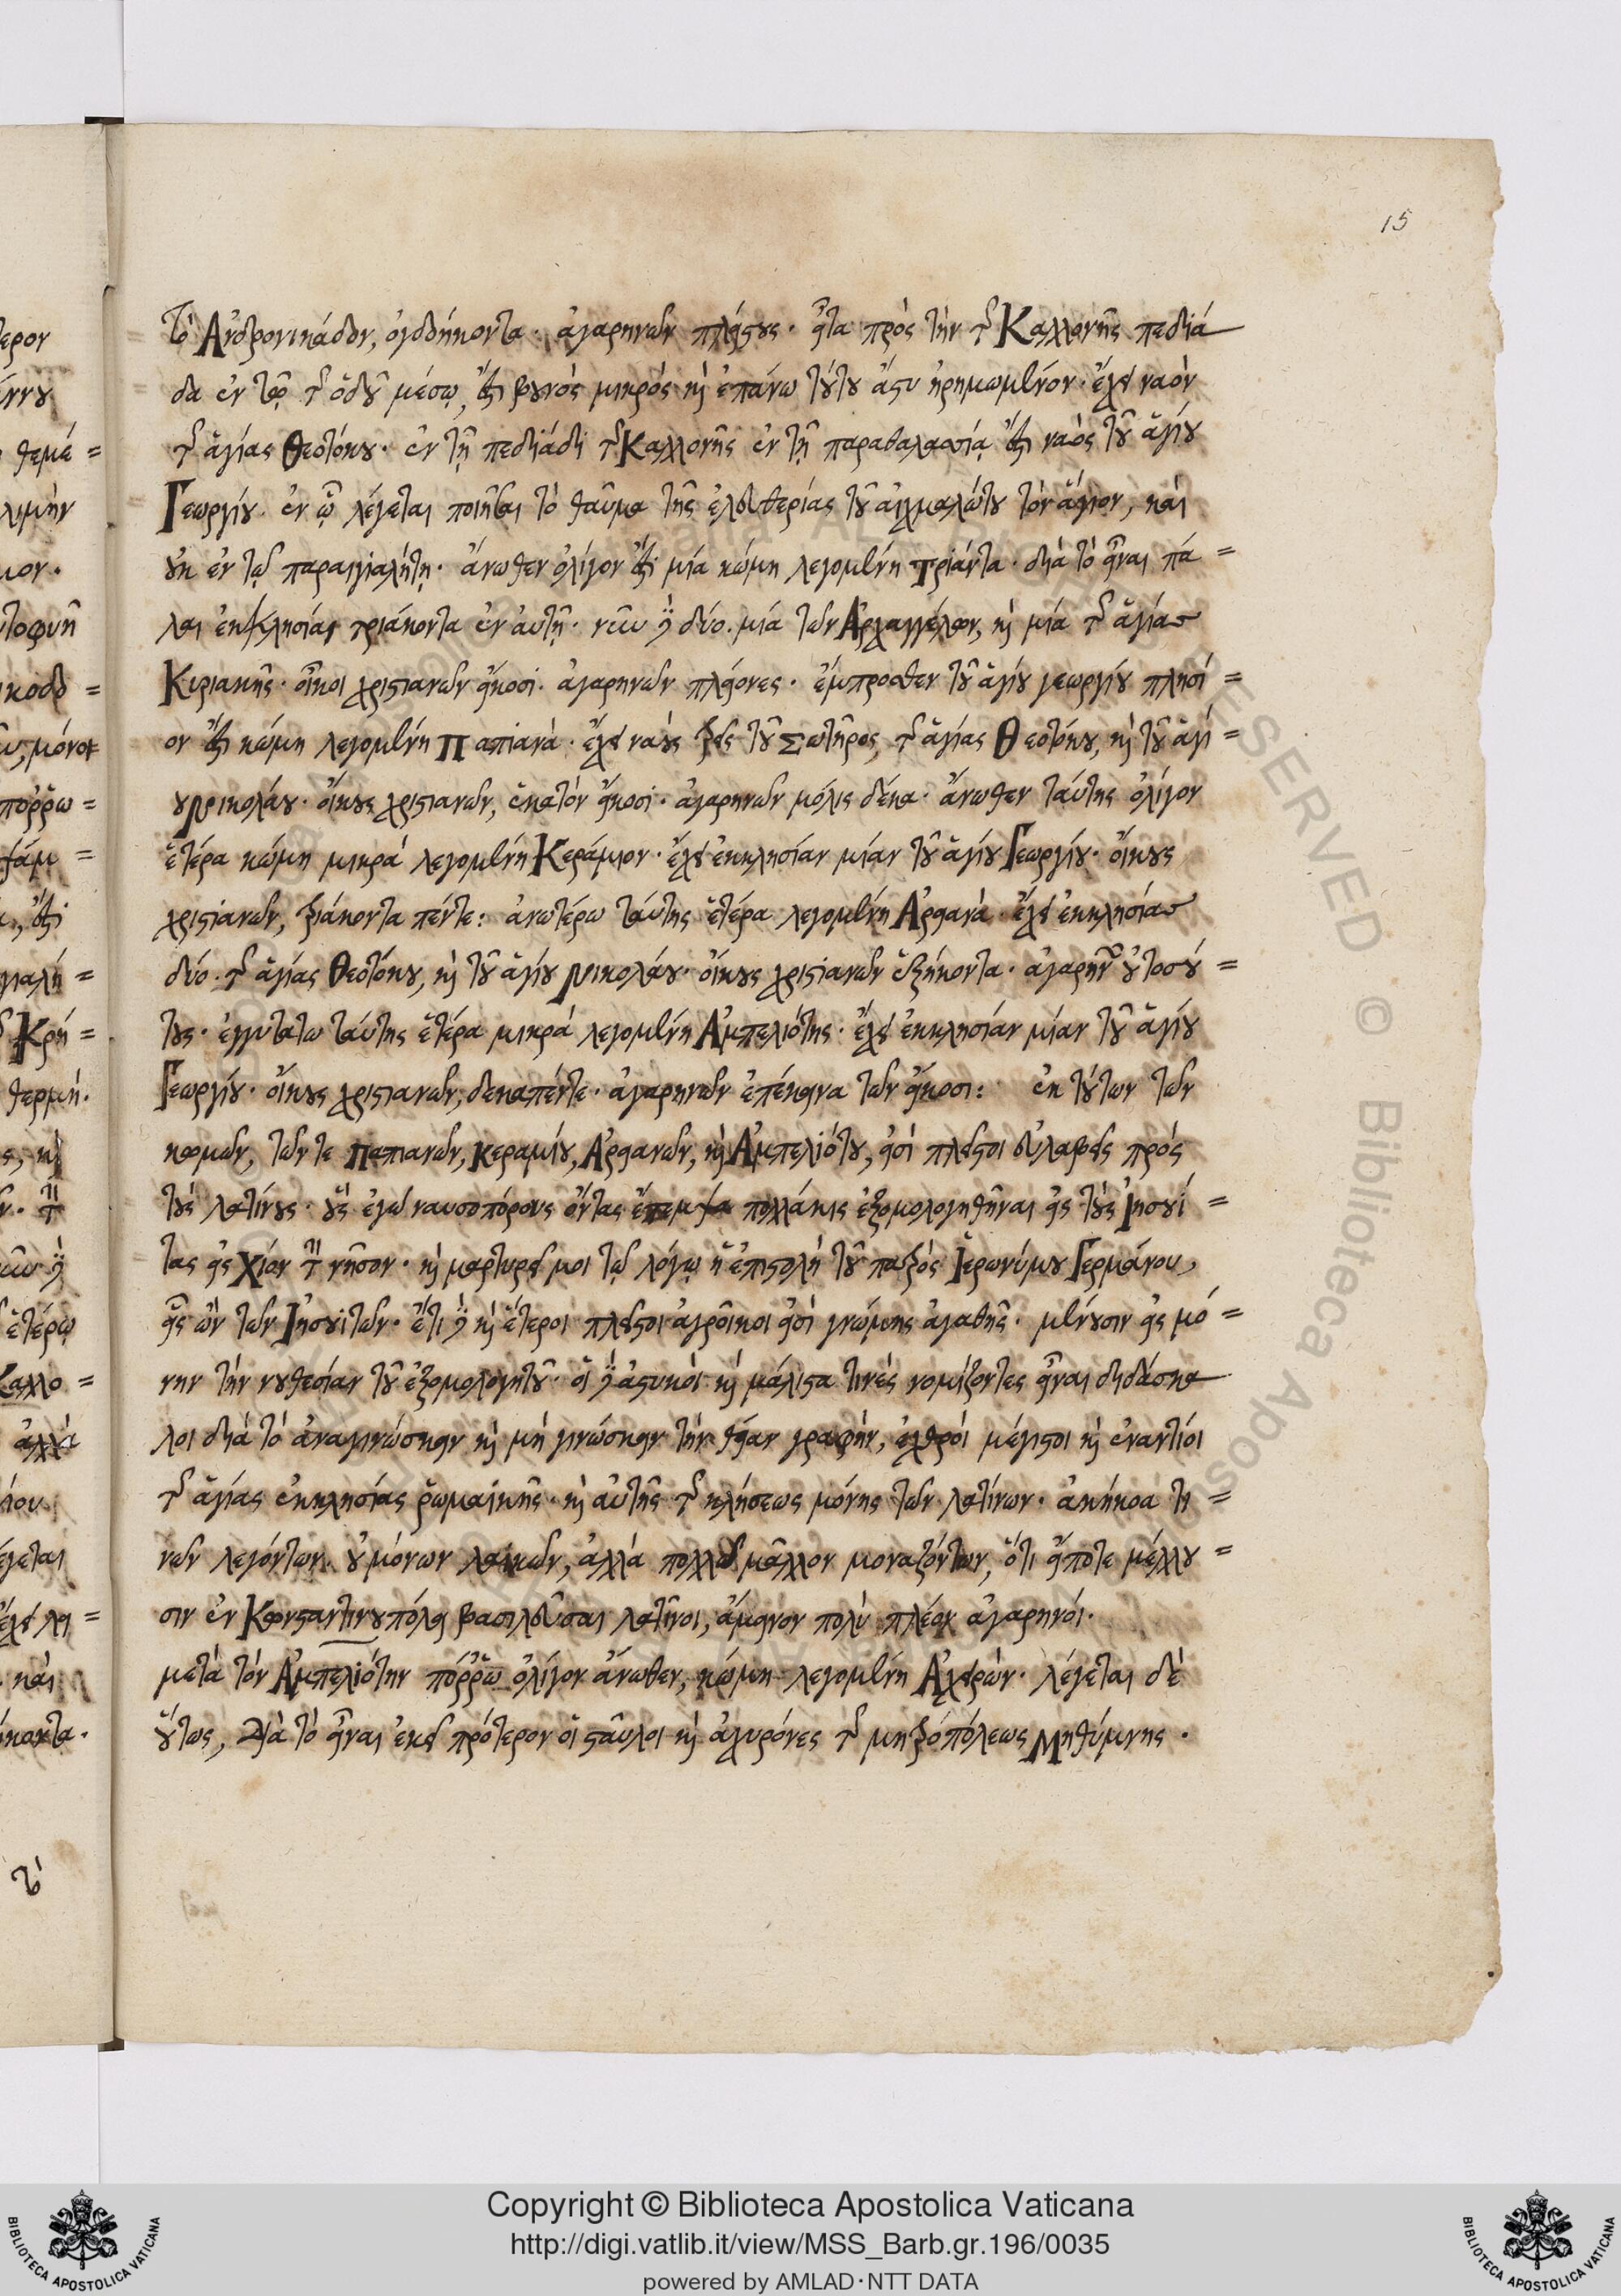 15
τὸ Ἀνδρονικάδον, ὀγδδήκοντα· ἀγαρηνῶν πλείστους· εἶτα πρὸς τὴν τῆς Καλλονῆς πεδιά
δα ἐν τῷ τῆς ὁδοῦ μέσῳ, ἐστὶ βουνὸς μικρὸς καὶ ἐπάνω τούτου ἄστυ ἠρημωμένον· ἔχει ναὸν
τῆς ἁγίας Θεοτόκου· ἐν τῇ πεδιάδι τῆς Καλλονῆς ἐν τῇ παραθαλασσίᾳ ἐστὶ ναὸς τοῦ ἁγίου
Γεωργίου· ἐν ᾧ λέγεται ποιῆσαι τὸ θαῦμα τῆς ἐλευθερίας τοῦ αἰχμαλώτου τὸν ἅγιον, καὶ
οὐκ ἐν τῷ παραιγιαλήτῃ· ἄνωθεν ὀλίγον ἐστὶ μία κώμη λεγομένη Τριάντα· διὰ τὸ εἶναι πά =
λαι ἐκκλησίας τριάκοντα ἐν αὐτῇ· νῦν δὲ δύο· μιά τῶν Ἀρχαγγέλων, καὶ μιά τῆς ἁγίας
Κυριακῆς· οἶκοι χριστιανῶν εἴκοσι· ἀγαρηνῶν πλείονες· ἔμπροσθεν τοῦ ἁγίου γεωργίου πλησί =
ον ἐστὶ κώμη λεγομένη Παπιανὰ· ἔχει ναοὺς τρεῖς τοῦ Σωτῆρος, τῆς ἁγίας Θεοτόκου, καὶ τοῦ ἁγί =
ου Νικολάου· οἴκους χριστιανῶν, ἑκατόν εἴκοσι· ἀγαρηνῶν μόλις δέκα· ἄνωθεν ταύτης ὀλίγον
ἑτέρα κώμη μικρά λεγομένη Κεράμιον· ἔχει ἐκκλησίαν μίαν τοῦ ἁγίου Γεωργίου· οἴκους
χριστιανῶν, τριάκοντα πέντε: ἀνωτέρω ταύτης ἑτέρα λεγομένη Ἀργανὰ· ἔχει ἐκκλησίας
δύο· τῆς ἁγίας Θεοτόκου, καὶ τοῦ ἁγίου Νικολάου· οἴκους χριστιανῶν ἑξήκοντα· ἀγαρηνῶν οὐτοσού =
τους· ἐγγυτάτω ταύτης ἑτέρα μικρά λεγομένη Ἀμπελιότης· ἔχει ἐκκλησίαν μίαν τοῦ ἁγίου
Γεωργίου· οἴκους χριστιανῶν, δεκαπέντε· ἀγαρηνῶν ἐπέκεινα τῶν εἴκοσι: ἐκ τούτων τῶν
κωμῶν, τῶν τε Παπιανῶν, Κεραμίου, Ἀργανῶν, καὶ Ἀμπελιότου, εἰσὶ πλεῖστοι εὐλαβεῖς πρός
τοὺς λατίνους· οὓς ἐγὼ ναυσοπόρους ὄντας ἔπεμψα πολλάκις ἐξομολογηθῆναι εἰς τοὺς Ἰησουί =
τας εἰς Χίον τὴν νῆσον· καὶ μαρτυρεῖ μοι τῷ λόγῳ ἡ ἐπιστολή τοῦ πατρὸς Ἱερωνύμου Γερμάνου,
εἷς ὢν τῶν Ἰησουιτῶν· ἔτι δὲ καὶ ἕτεροι πλεῖστοι ἀγροῖκοι εἰσὶ γνώμης ἀγαθῆς· μένουσιν εἰς μό =
νην τὴν νουθεσίαν τοῦ ἐξομολογητοῦ· οἱ δὲ ἀστυκοὶ καὶ μάλιστα τινὲς νομίζοντες εἶναι διδάσκα
λοι διὰ τὸ ἀναγινώσκειν καὶ μὴ γινώσκειν τὴν θείαν γραφὴν, ἐχθροὶ μέγιστοι καὶ ἐναντίοι
τῆς ἁγίας ἐκκλησίας ῥωμαϊκῆς· καὶ αὐτῆς τῆς κλήσεως μόνης τῶν λατίνων· ἀκήκοα τι =
νῶν λεγόντων· οὐ μόνων λαϊκῶν, ἀλλὰ πολλῷ μᾶλλον μοναζόντων, ὅτι εἴποτε μέλλου =
σιν ἐν Κωνσταντινουπόλει βασιλεῦσαι λατῖνοι, ἄμεινον πολὺ πλέον ἀγαρηνοί·
μετὰ τὸν Ἀμπελιότην πόρρω ὀλίγον ἄνωθεν, κώμη λεγομένη Ἀχερὼν· λέγεται δὲ
οὕτως, διὰ τὸ εἶναι ἐκεῖ πρότερον οἱ σταῦλοι καὶ ἀχυρόνες τῆς μητροπόλεως Μηθύμνης·
Copyright © Biblioteca Apostolica Vaticana
http://digi.vatlib.it/view/MSS_Barb.gr.196/0035
powered by AMLAD·NTT DATA